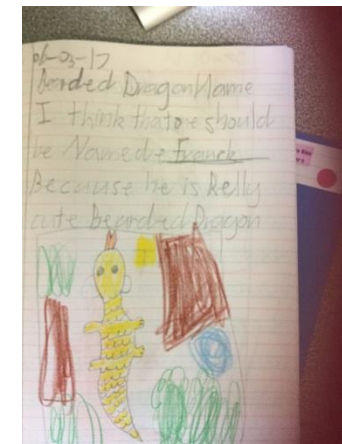 06-03-17
Bearded Dragon Name
I think that he should
be Named Franck
Because he is Relly
cute bearded Dragon